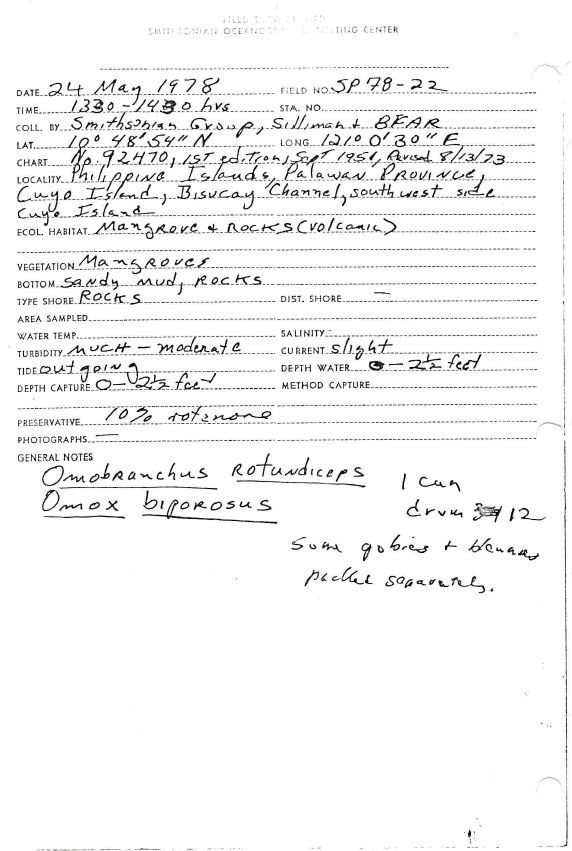 SMITHSONIAN OCEANOGRAPHIC SORTING CENTER
DATE 24 May 1978 FIELD NO. SP78-22
TIME 1330-1430 hrs STA. NO.
COLL. BY Smithsonian Group, Silliman & BFAR
LAT. 10° 48' 54" N LONG. 121° 0' 30" E
CHART No. 92470, 1ST ed. Sept 1951, Revised 8/13/73
LOCALITY Philippine Islands, Palawan Province,
Cuyo Island, Bisucay Channel, southwest side
Cuyo Island
ECOL. HABITAT Mangrove & Rocks (volcanic)
VEGETATION Mangroves
BOTTOM sandy mud, rocks
TYPE SHORE Rocks DIST. SHORE —
AREA SAMPLED
WATER TEMP. SALINITY
TURBIDITY much - moderate CURRENT slight
TIDE outgoing DEPTH WATER 0-2½ feet
DEPTH CAPTURE 0-2½ feet METHOD CAPTURE
PRESERVATIVE 10% rotenone
PHOTOGRAPHS —
GENERAL NOTES
Omobranchus rotundiceps 1 can
Omox biporosus drum 12
Some gobies & blennies
packed separately.